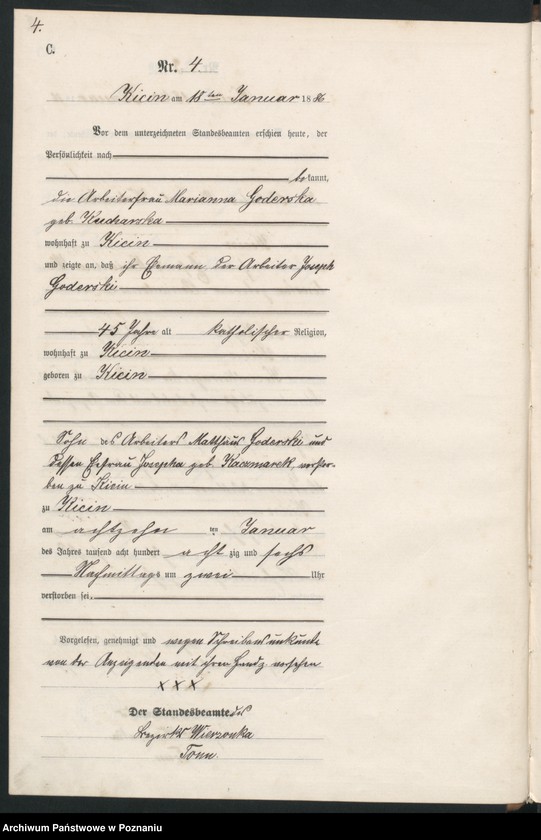 4.
C.
Nr. 4.
Kicin am 18ten Januar 1886
Vor dem unterzeichneten Standesbeamten erschien heute, der
Persönlichkeit nach
bekannt,
die Arbeiterfrau Marianna Goderska
geb. Kucharska
wohnhaft zu Kicin
und zeigte an, daß ihr Ehemann der Arbeiter Joseph
Goderski
45 Jahre alt katholischer Religion,
wohnhaft zu Kicin
geboren zu Kicin
Sohn des Arbeiters Matthäus Goderski und
dessen Ehefrau Josepha geb. Kaczmarek, verstor-
ben zu Kicin
zu Kicin
am achtzehn ten Januar
des Jahres tausend acht hundert acht zig und sechs
Nachmittags um zwei Uhr
verstorben sei.
Vorgelesen, genehmigt und wegen Schreibensunkunde
von der Anzeigenden mit ihren Handz. versehen.
x x x
Der Standesbeamte des
Bezirks Wierzonka
Tonn.
Archiwum Państwowe w Poznaniu